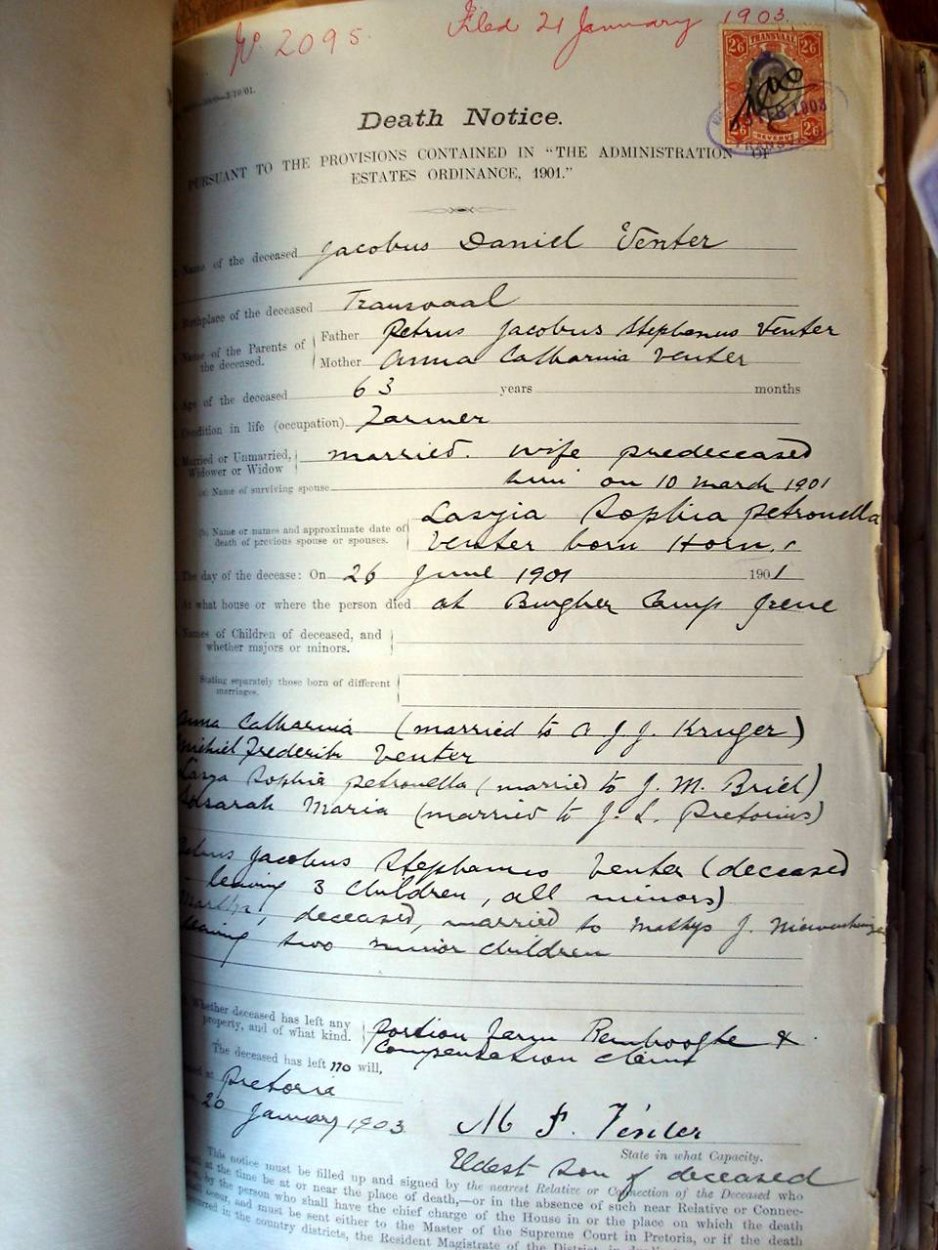 No 2095. Filed 21 January 1903.
TRANSVAAL
2/6 2/6
FEB 1903
2/6 REVENUE 2/6
Death Notice.
PURSUANT TO THE PROVISIONS CONTAINED IN "THE ADMINISTRATION OF
ESTATES ORDINANCE, 1901."
Name of the deceased Jacobus Daniel Venter
Birthplace of the deceased Transvaal
Name of the Parents of the deceased. Father Petrus Jacobus Stephanus Venter
Mother Anna Catharina Venter
Age of the deceased 63 years months
Condition in life (occupation) Farmer
Married or Unmarried, Widower or Widow married. wife predeceased
him on 10 March 1901
Name of surviving spouse
Name or names and approximate date of death of previous spouse or spouses. Sophia Petronella
Venter born Horn
The day of the decease: On 26 June 1901 1901
At what house or where the person died at Burgher Camp Irene
Names of Children of deceased, and
whether majors or minors.
Stating separately those born of different
marriages.
Anna Catharina (married to A J J. Kruger)
Frederik Venter
Sophia Petronella (married to J. M. Briel)
Maria (married to J. L. Pretorius)
Petrus Jacobus Stephanus Venter (deceased
leaving 3 children, all minors)
deceased, married to Mathys J.
leaving two minor children
Whether deceased has left any property, and of what kind. Portion farm &
Compensation claim
The deceased has left no will,
Dated at Pretoria
20 January 1903 M F. Venter
State in what Capacity.
Eldest son of deceased
This notice must be filled up and signed by the nearest Relative or Connection of the Deceased who
at the time be at or near the place of death,—or in the absence of such near Relative or Connec-
by the person who shall have the chief charge of the House in or the place on which the death
occur, and must be sent either to the Master of the Supreme Court in Pretoria, or if the death
in the country districts, the Resident Magistrate of the District